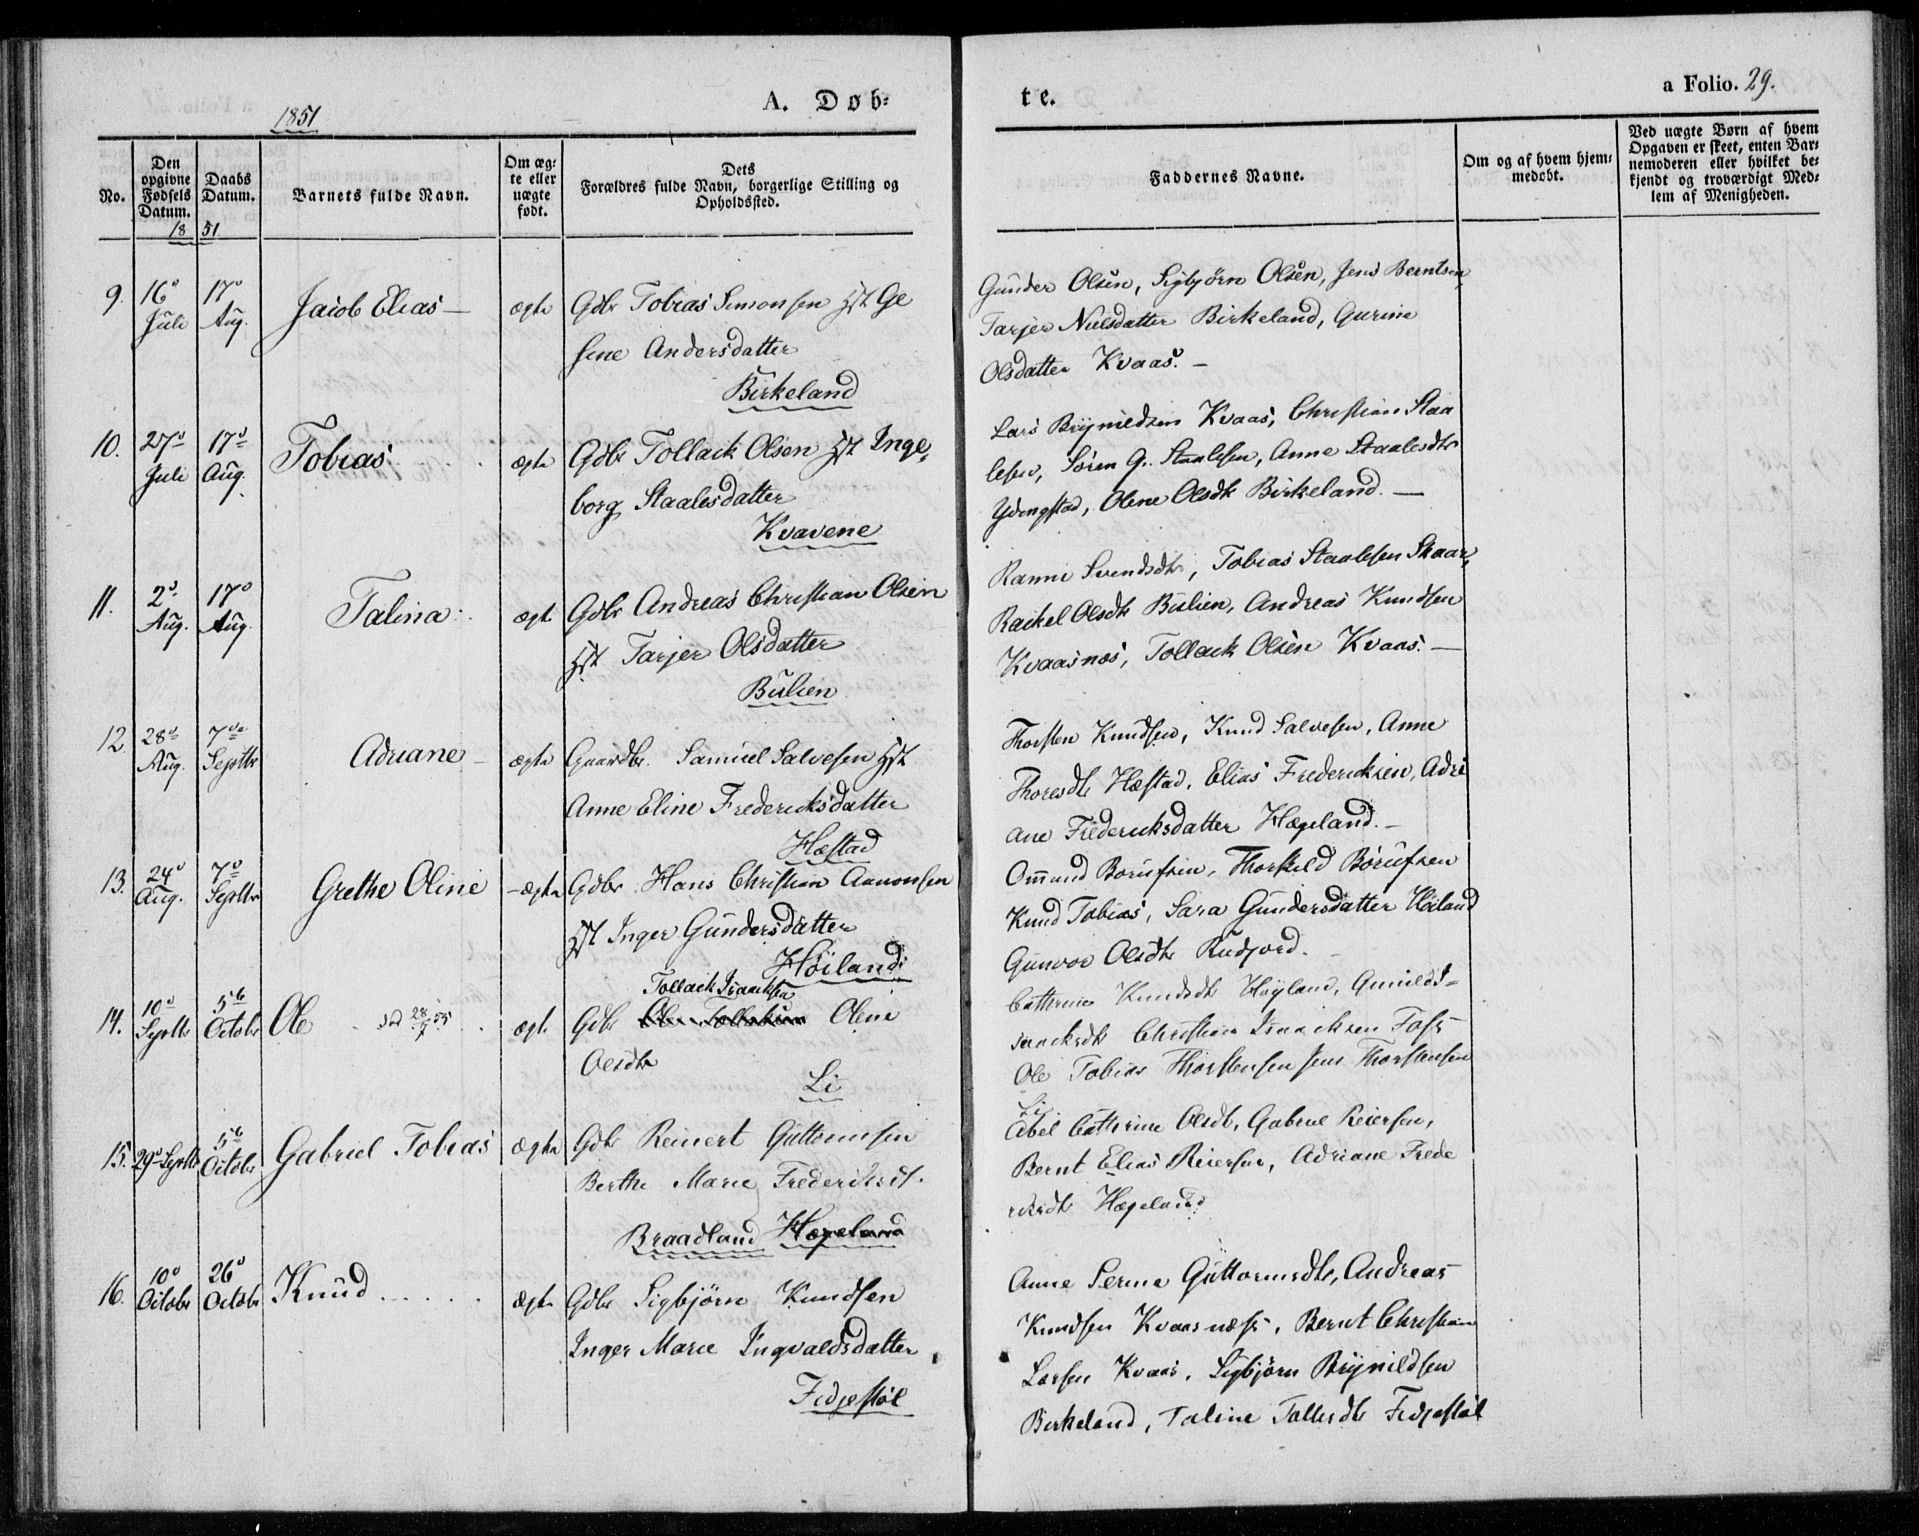 1851
A. Døb-
te.
a Folio. 29.
No.
Den opgivne Fødsels Datum.
Daabs Datum.
Barnets fulde Navn.
Om ægte eller uægte født.
Dets
Forældres fulde Navn, borgerlige Stilling og
Opholdssted.
Faddernes Navne.
Om og af hvem hjem-
medøbt.
Ved uægte Børn af hvem
Opgaven er skeet, enten Bar-
nemoderen eller hvilket be-
kjendt og troværdigt Med-
lem af Menigheden.
18 51
9. 16 Juli 17 Aug. Jacob Elias — ægte Gdbr Tobias Simonsen Hst Ge
sine Andersdatter
Birkeland
Gunder Olsen, Sigbjørn Olsen, Jens Berntsen,
Tarjer Nielsdatter Birkeland, Gurine
Olsdatter Kvaas. —
10. 27 Juli 17 Aug. Tobias ægte Gdbr Tollack Olsen Hst Inge,
borg Staalesdatter
Kvavene
Lars Brynildsen Kvaas, Christian Staa
lesen, Søren G. Staalesen, Anne Staalesdtr
Ydengstad, Olene Olsdtr Birkeland. —
11. 2 Aug. 17 Aug. Talina ægte Gdbr Andreas Christian Olsen
Hst Tarjer Olsdatter
Bulien
Ranni Svendsdtr, Tobias Staalesen Skaar,
Rackel Olsdtr Bulien, Andreas Knudsen
Kvaasnæs, Tollack Olsen Kvaas. —
12. 28 Aug. 7de Septbr Adriane — ægte Gaardbr. Samuel Salvesen Hst
Anne Eline Fredericksdatter
Hæstad
Thorsten Knudsen, Knud Salvesen, Anne
Thoresdtr Hæstad, Elias Fredericksen, Adri
ane Fredericksdatter Hægeland. —
13. 24 Aug. 7 Septbr Grethe Oline — ægte Gdbr Hans Christian Aanonsen
Hst Inger Gundersdatter
Høiland
Ommund Børufsen, Thorkild Børufsen
Knud Tobias, Sara Gundersdatter Høiland
Gunvor Olsdtr Rudjord.
14. 10 Septbr 5te Octobr Ole død 28/7 55 ægte Gdbr Tollack Isaacksen Olene
Olsdtr
Li
Cathrine Knudsdtr Høyland, Gunild I-
saacksdtr Christian Isaacksen Foss
Ole Tobias Thorstensen Jens Thorstensen
Li
15. 29 Septbr 5te Octobr Gabriel Tobias ægte Gdbr Reinert Guttormsen
Berthe Marie Fredericksdtr.
Braadland Hægeland
Abel Cathrine Olsdtr, Gabriel Reiersen,
Bernt Elias Reiersen, Adriane Frede
ricksdtr Hægeland
16. 10 Octobr 26 Octobr Knud ..... ægte Gdbr Sigbjørn Knudsen
Inger Marie Ingvaldsdatter
Fidjestøl
Anne Serine Guttormsdtr, Andreas
Knudsen Kvaasnæss, Bernt Christian
Larsen Kvaas, Sigbjørn Brynildsen
Birkeland, Taline Tollefsdtr Fidjestøl